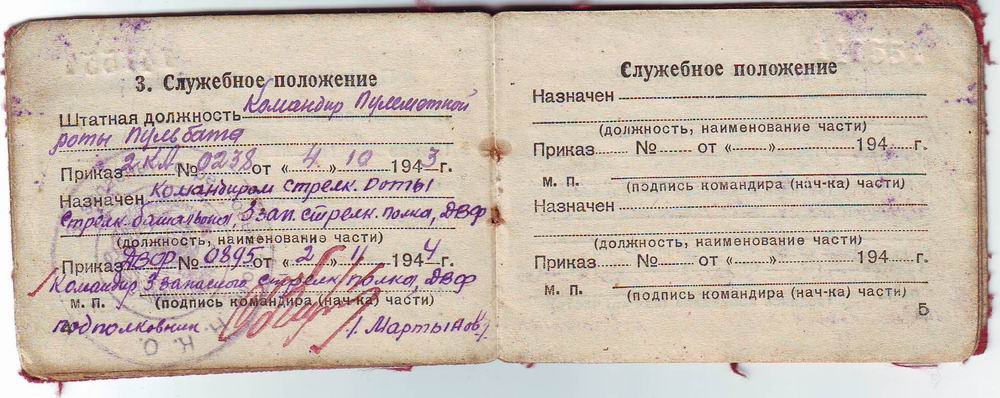 3. Служебное положение
Штатная должность Командир Пулеметной
роты Пульбата
Приказ 2КА № 0238 от «4» 10 1943 г.
Назначен Командиром стрелк. роты
Стрелк. батальона, 3 зап. стрелк. полка, ДВФ
(должность, наименование части)
Приказ ДВФ № 0895 от «2» 11 1944 г.
Командир 3 запасного стрелк. полка, ДВФ
м. п. (подпись командира (нач-ка) части)
подполковник /Мартынов/
Н. К. О.
Служебное положение
Назначен
(должность, наименование части)
Приказ № от « » 194 г.
м. п.
(подпись командира (нач-ка) части)
Назначен
(должность, наименование части)
Приказ № от « » 194 г.
м. п.
(подпись командира (нач-ка) части)
5